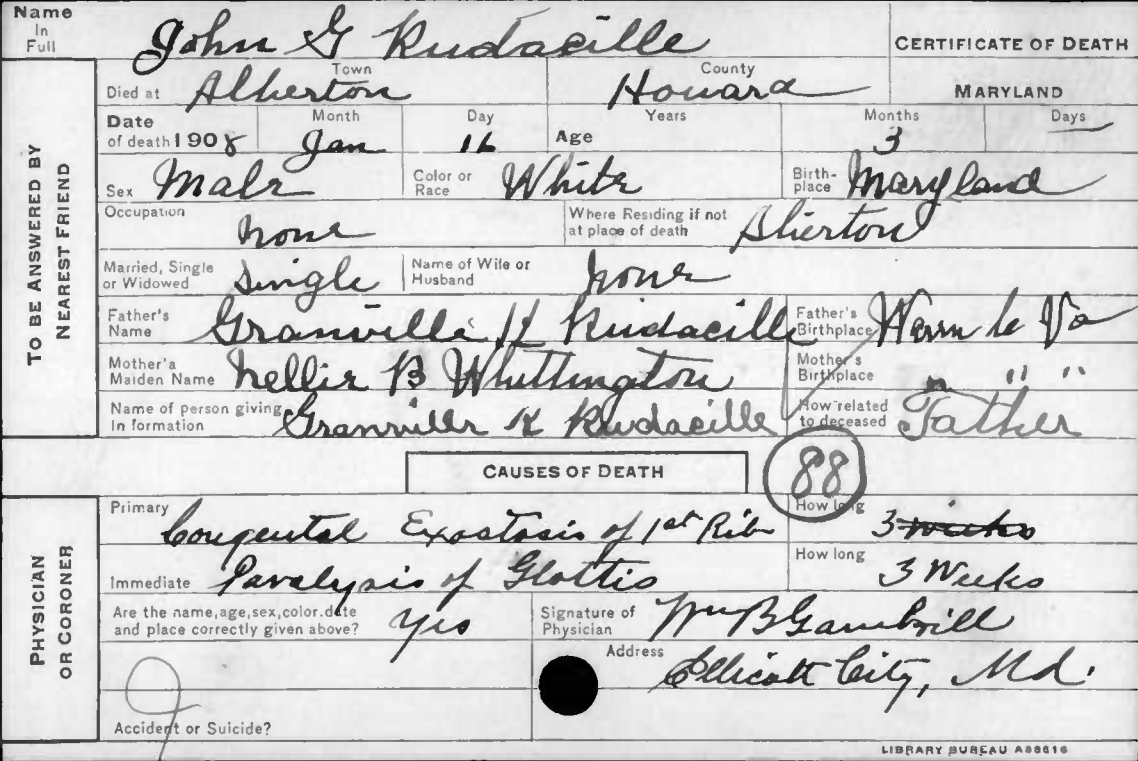 Name In Full John G Rudacille
CERTIFICATE OF DEATH
TO BE ANSWERED BY NEAREST FRIEND
Died at Alberton Town Howard County MARYLAND
Date of death 1908 Month Jan Day 16 Age Years Months 3 Days
Sex Male Color or Race White Birth-place Maryland
Occupation none Where Residing if not at place of death Alberton
Married, Single or Widowed Single Name of Wife or Husband none
Father's Name Granville K Rudacille Father's Birthplace Warrn Co Va
Mother's Maiden Name Nellie B Whittington Mother's Birthplace " " "
Name of person giving In formation Granville K Rudacille How related to deceased Father
CAUSES OF DEATH 88
PHYSICIAN OR CORONER
Primary Congental Exostosis of 1st Rib How long 3 weeks
Immediate Paralysis of Glottis How long 3 Weeks
Are the name, age, sex, color, date and place correctly given above? Yes Signature of Physician Wm B Gambrill
Address Ellicott City, Md.
Accident or Suicide?
LIBRARY BUREAU A88616